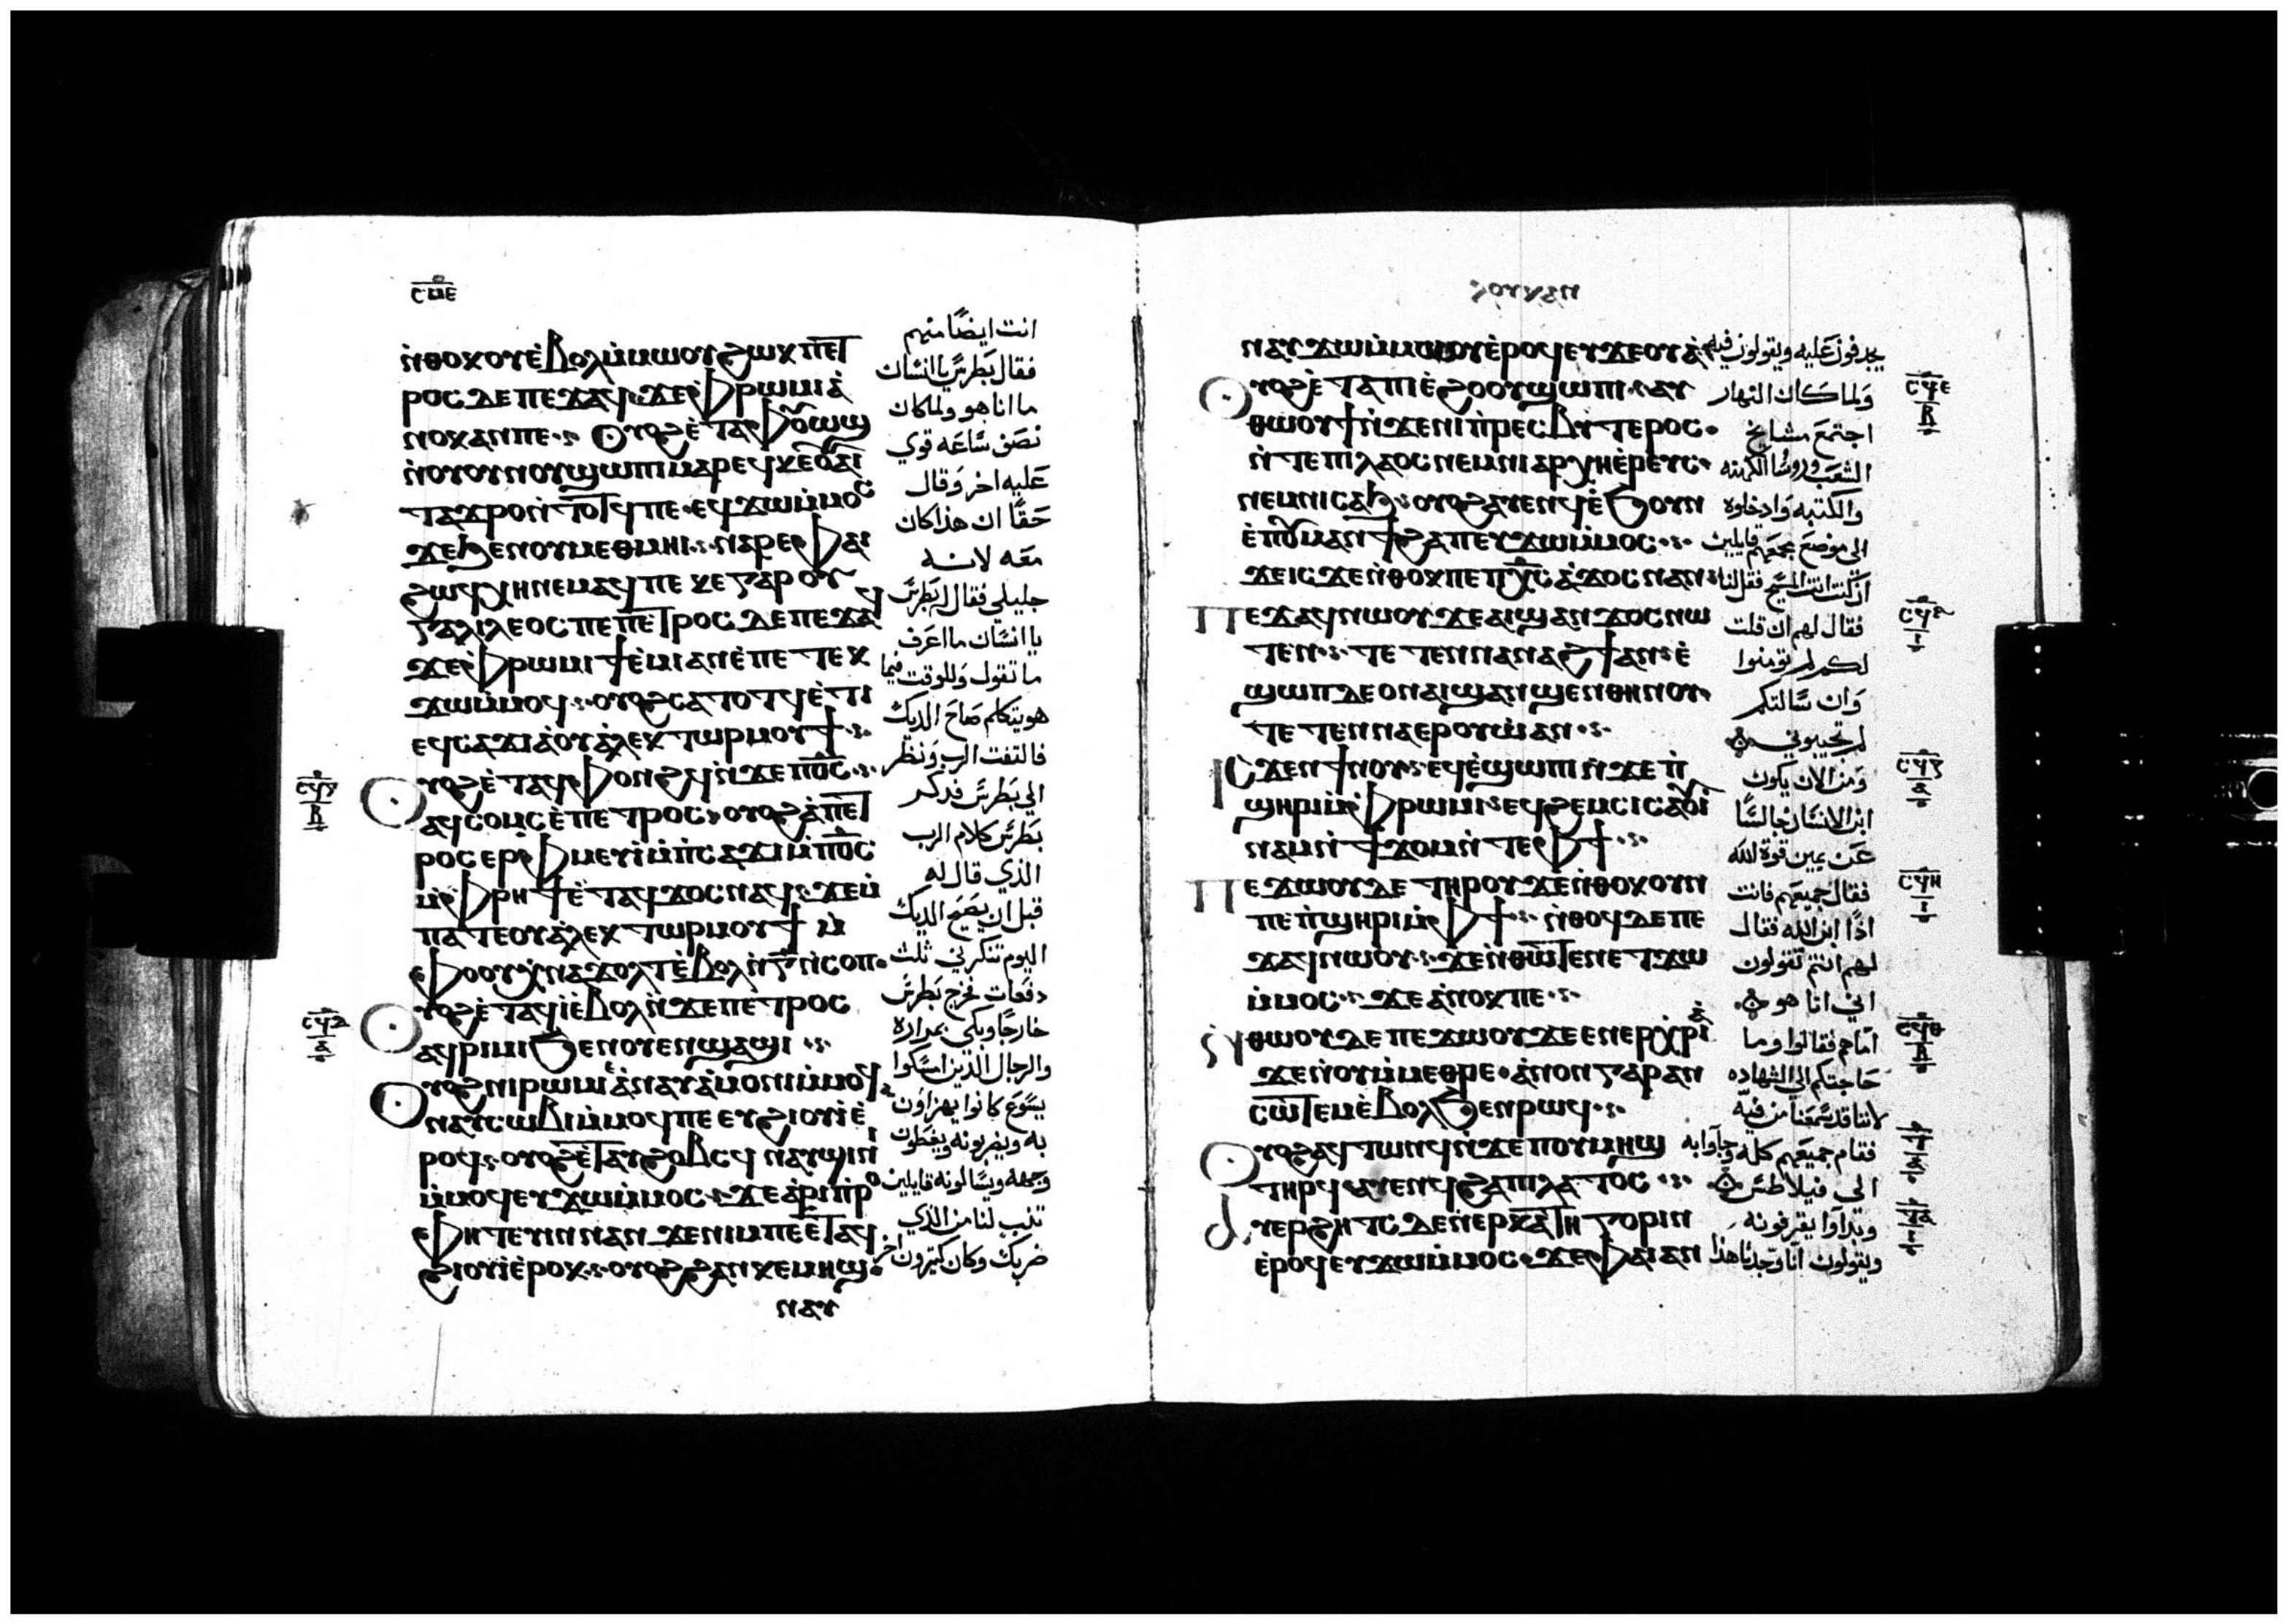 ⲥⲙⲉ
ⲛ̀ⲑⲟⲕ ⲟⲩⲉ̀ⲃⲟⲗ ⲙ̀ⲙⲱⲟⲩ ϩⲱⲕ ⲡⲉⲧ
ⲣⲟⲥ ⲇⲉ ⲡⲉϫⲁϥ ϫⲉ ⲫⲣⲱⲙⲓ ⲁ̀
ⲛⲟⲕ ⲁⲛ ⲡⲉ ⲟⲩⲟϩ ⲉ̀ⲧⲁ ⲫⲟⲩⲱϣ
ⲛ̀ⲟⲩⲟⲩⲛⲟⲩ ϣⲱⲡⲓ ⲛⲁⲣⲉ ⲕⲉⲟⲩⲁⲓ
ⲧⲁϫⲣⲟ ⲛ̀ⲧⲟⲧϥ ⲡⲉ ⲉϥϫⲱ ⲙ̀ⲙⲟⲥ
ϫⲉ ϧⲉⲛ ⲟⲩⲙⲉⲑⲙⲏⲓ ⲛⲁⲣⲉ ⲫⲁⲓ
ϩⲱϥ ⲭⲏ ⲛⲉⲙⲁϥ ⲡⲉ ⲕⲉ ⲅⲁⲣ ⲟⲩ
ⲅⲁⲗⲓⲗⲉⲟⲥ ⲡⲉ ⲡⲉⲧⲣⲟⲥ ⲇⲉ ⲡⲉϫⲁϥ
ϫⲉ ⲫⲣⲱⲙⲓ ϯⲉ̀ⲙⲓ ⲁⲛ ⲉ̀ⲡⲉⲧⲉⲕ
ϫⲱ ⲙ̀ⲙⲟϥ ⲟⲩⲟϩ ⲥⲁⲧⲟⲧϥ ⲉ̀ⲧⲓ
ⲉϥⲥⲁϫⲓ ⲁ̀ ⲟⲩⲁ̀ⲗⲉⲕⲧⲱⲣ ⲙⲟⲩϯ
ⲟⲩⲟϩ ⲉ̀ⲧⲁϥⲫⲟⲛϩϥ ⲛ̀ϫⲉ ⲡϭⲟⲓⲥ
ⲁϥⲥⲟⲙⲥ ⲉ̀ⲡⲉⲧⲣⲟⲥ ⲟⲩⲟϩ ⲁ̀ ⲡⲉⲧ
ⲣⲟⲥ ⲉⲣⲫⲙⲉⲩⲓ̀ ⲙ̀ⲡⲥⲁϫⲓ ⲙ̀ⲡϭⲟⲓⲥ
ⲙ̀ⲫⲣⲏϯ ⲉ̀ⲧⲁϥϫⲟⲥ ⲛⲁϥ ϫⲉ ⲙ̀
ⲡⲁⲧⲉ ⲟⲩⲁ̀ⲗⲉⲕⲧⲱⲣ ⲙⲟⲩϯ ⲙ̀
ⲫⲟⲟⲩ ⲭⲛⲁϫⲟⲗⲧ ⲉ̀ⲃⲟⲗ ⲛ̀ⲅ̅ ⲛ̀ⲥⲟⲡ
ⲟⲩⲟϩ ⲉ̀ⲧⲁϥⲓ̀ ⲉ̀ⲃⲟⲗ ⲛ̀ϫⲉ ⲡⲉⲧⲣⲟⲥ
ⲁϥⲣⲓⲙⲓ ϧⲉⲛ ⲟⲩⲉⲛϣⲁϣⲓ
ⲟⲩⲟϩ ⲛⲓⲣⲱⲙⲓ ⲉ̀ⲛⲁⲩⲁ̀ⲙⲟⲛⲓ ⲙ̀ⲙⲟϥ
ⲛⲁⲩⲥⲱⲃⲓ ⲙ̀ⲙⲟϥ ⲡⲉ ⲉⲩϩⲓⲟⲩⲓ̀ ⲉ̀
ⲣⲟϥ ⲟⲩⲟϩ ⲉ̀ⲧⲁⲩϩⲟⲃⲥϥ ⲛⲁⲩϣⲓⲛⲓ
ⲙ̀ⲙⲟϥ ⲉⲩϫⲱ ⲙ̀ⲙⲟⲥ ϫⲉ ⲁ̀ⲣⲓⲡⲣⲟ
ⲫⲏⲧⲉⲩⲓⲛ ⲛⲁⲛ ϫⲉ ⲛⲓⲙ ⲡⲉ ⲉⲧⲁϥ
ϩⲓⲟⲩⲓ̀ ⲉ̀ⲣⲟⲕ ⲟⲩⲟϩ ϩⲁⲛⲕⲉⲙⲏϣ
ⲛⲁⲩ
انت ايضًا منهم
فقال بطرس يا انسان
ما انا هو ولما كان
نصف ساعه قوي
عليه اخر وقال
حقًا ان هذا كان
معه لانه
جليلي فقال بطرس
يا انسان ما اعرف
ما تقول وللوقت فيما
هو يتكلم صاح الديك
فالتفت الرب ونظر
الي بطرس فدكر
بطرس كلام الرب
الذي قال له
قبل ان يصيح الديك
اليوم تنكرني ثلث
دفعات فخرج بطرس
خارجًا وبكي بمراره
والرجال الذين امسكوا
يسوع كانوا يهزاون
به ويضربونه ويغطون
وجهه ويسالونه قايلين
تنب لنا من الذي
ضربك وكان كتيرون اخر
ⲥϥⲅ
ⲃ
ⲥϥⲇ
ⲁ
ⲗⲟⲩⲕⲁⲛ
ⲛⲁⲩϫⲱ ⲙ̀ⲙⲱⲟⲩ ⲉ̀ⲣⲟϥ ⲉⲩϫⲉⲟⲩⲁ̀
ⲟⲩⲟϩ ⲉ̀ⲧⲁ ⲡⲓⲉ̀ϩⲟⲟⲩ ϣⲱⲡⲓ ⲁⲩ
ⲑⲱⲟⲩϯ ⲛ̀ϫⲉ ⲛⲓⲡⲣⲉⲥⲃⲩⲧⲉⲣⲟⲥ
ⲛ̀ⲧⲉ ⲡⲓⲗⲁⲟⲥ ⲛⲉⲙ ⲛⲓⲁⲣⲭⲏⲉ̀ⲣⲉⲩⲥ
ⲛⲉⲙ ⲛⲓⲥⲁϧ ⲟⲩⲟϩ ⲁⲩⲉⲛϥ ⲉ̀ϧⲟⲩⲛ
ⲉ̀ⲡⲟⲩⲙⲁⲛϯϩⲁⲡ ⲉⲩϫⲱ ⲙ̀ⲙⲟⲥ
ϫⲉ ⲓⲥϫⲉ ⲛ̀ⲑⲟⲕ ⲡⲉ ⲡⲭ̅ⲥ̅ ⲁ̀ϫⲟⲥ ⲛⲁⲛ
ⲡⲉϫⲁϥ ⲛⲱⲟⲩ ϫⲉ ⲁⲓϣⲁⲛϫⲟⲥ ⲛⲱ
ⲧⲉⲛ ⲧⲉⲧⲉⲛⲛⲁⲛⲁϩϯ ⲁⲛ ⲉ̀
ϣⲱⲡ ⲇⲉ ⲟⲛ ⲁⲓϣⲁⲛϣⲉⲛⲑⲏⲛⲟⲩ
ⲧⲉⲧⲉⲛⲛⲁⲉⲣⲟⲩⲱ̀ ⲁⲛ
ⲓⲥϫⲉⲛ ϯⲛⲟⲩ ⲉϥⲉ̀ϣⲱⲡⲓ ⲛ̀ϫⲉ ⲡ̀
ϣⲏⲣⲓ ⲙ̀ⲫⲣⲱⲙⲓ ⲉϥϩⲉⲙⲥⲓ ⲥⲁⲟⲩⲓ̀
ⲛⲁⲙ ⲛ̀ϯϫⲟⲙ ⲛ̀ⲧⲉ ⲫϯ
ⲡⲉϫⲱⲟⲩ ⲇⲉ ⲧⲏⲣⲟⲩ ϫⲉ ⲛ̀ⲑⲟⲕ ⲟⲩⲛ
ⲡⲉ ⲡϣⲏⲣⲓ ⲙ̀ⲫϯ ⲛ̀ⲑⲟϥ ⲇⲉ ⲡⲉ
ϫⲁϥ ⲛⲱⲟⲩ ϫⲉ ⲛ̀ⲑⲱⲧⲉⲛ ⲉⲧϫⲱ
ⲙ̀ⲙⲟⲥ ϫⲉ ⲁ̀ⲛⲟⲕ ⲡⲉ
ⲛ̀ⲑⲱⲟⲩ ⲇⲉ ⲡⲉϫⲱⲟⲩ ϫⲉ ⲉⲛⲉⲣⲭⲣⲓⲁ̀
ϫⲉ ⲛ̀ⲟⲩⲙⲉⲑⲣⲉ ⲁ̀ⲛⲟⲛ ⲅⲁⲣ ⲁⲛ
ⲥⲱⲧⲉⲙ ⲉ̀ⲃⲟⲗ ϧⲉⲛ ⲣⲱϥ
ⲟⲩⲟϩ ⲁϥⲧⲱⲛϥ ⲛ̀ϫⲉ ⲡⲟⲩⲙⲏϣ
ⲧⲏⲣϥ ⲁⲩⲉⲛϥ ϩⲁ ⲡⲓⲗⲁⲧⲟⲥ
ⲁⲩⲉⲣϩⲏⲧⲥ ⲇⲉ ⲛ̀ⲉⲣⲕⲁⲧⲏⲅⲟⲣⲓⲛ
ⲉ̀ⲣⲟϥ ⲉⲩϫⲱ ⲙ̀ⲙⲟⲥ ϫⲉ ⲫⲁⲓ ⲁⲛ
يجدفون عليه ويقولون فيه
ولما كان النهار
اجتمع مشايخ
الشعب وروسا الكهنه
والكتبه وادخلوه
الي موضع مجمعهم قايلين
ان كنت انت المسيح فقل لنا
فقال لهم ان قلت
لكم لم تومنوا
وان سالتكم
لم تجيبوني
ومن الان يكون
ابن الانسان جالسًا
عن يمين قوة الله
فقال جميعهم فانت
اذًا ابن الله فقال
لهم انتم تقولون
اني انا هو
اما هم فقالوا وما
حاجتكم الي الشهاده
لاننا قد سمعنا من فيه
فقام جميعهم كله وجآوا به
الي فيلاطس
وبدآوا يقرفونه
ويقولون انا وجدنا هذا
ⲥϥⲉ
ⲃ
ⲥϥⲋ
ⲓ
ⲥϥⲍ
ⲁ
ⲥϥⲏ
ⲓ
ⲥϥⲑ